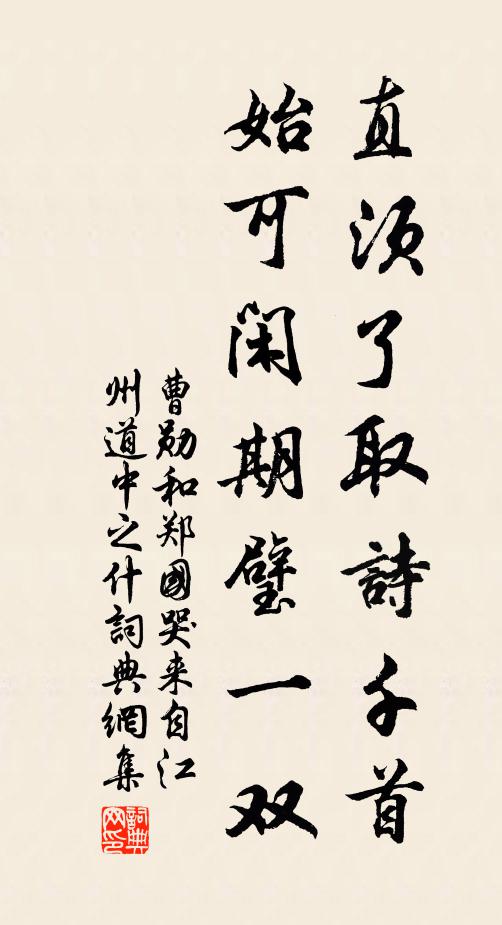 直须了取詩千首
始可闲期璧一双
曹勋和郑國哭来自江
州道中之什詞典網集